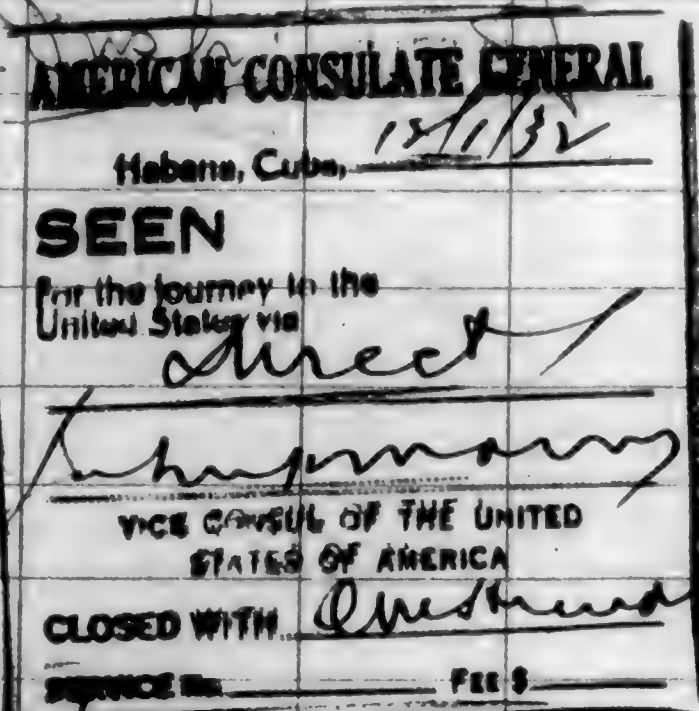 AMERICAN CONSULATE GENERAL
Habana, Cuba,
SEEN
For the journey to the
United States via
direct
VICE CONSUL OF THE UNITED
STATES OF AMERICA
CLOSED WITH
SERVICE No. FEE $